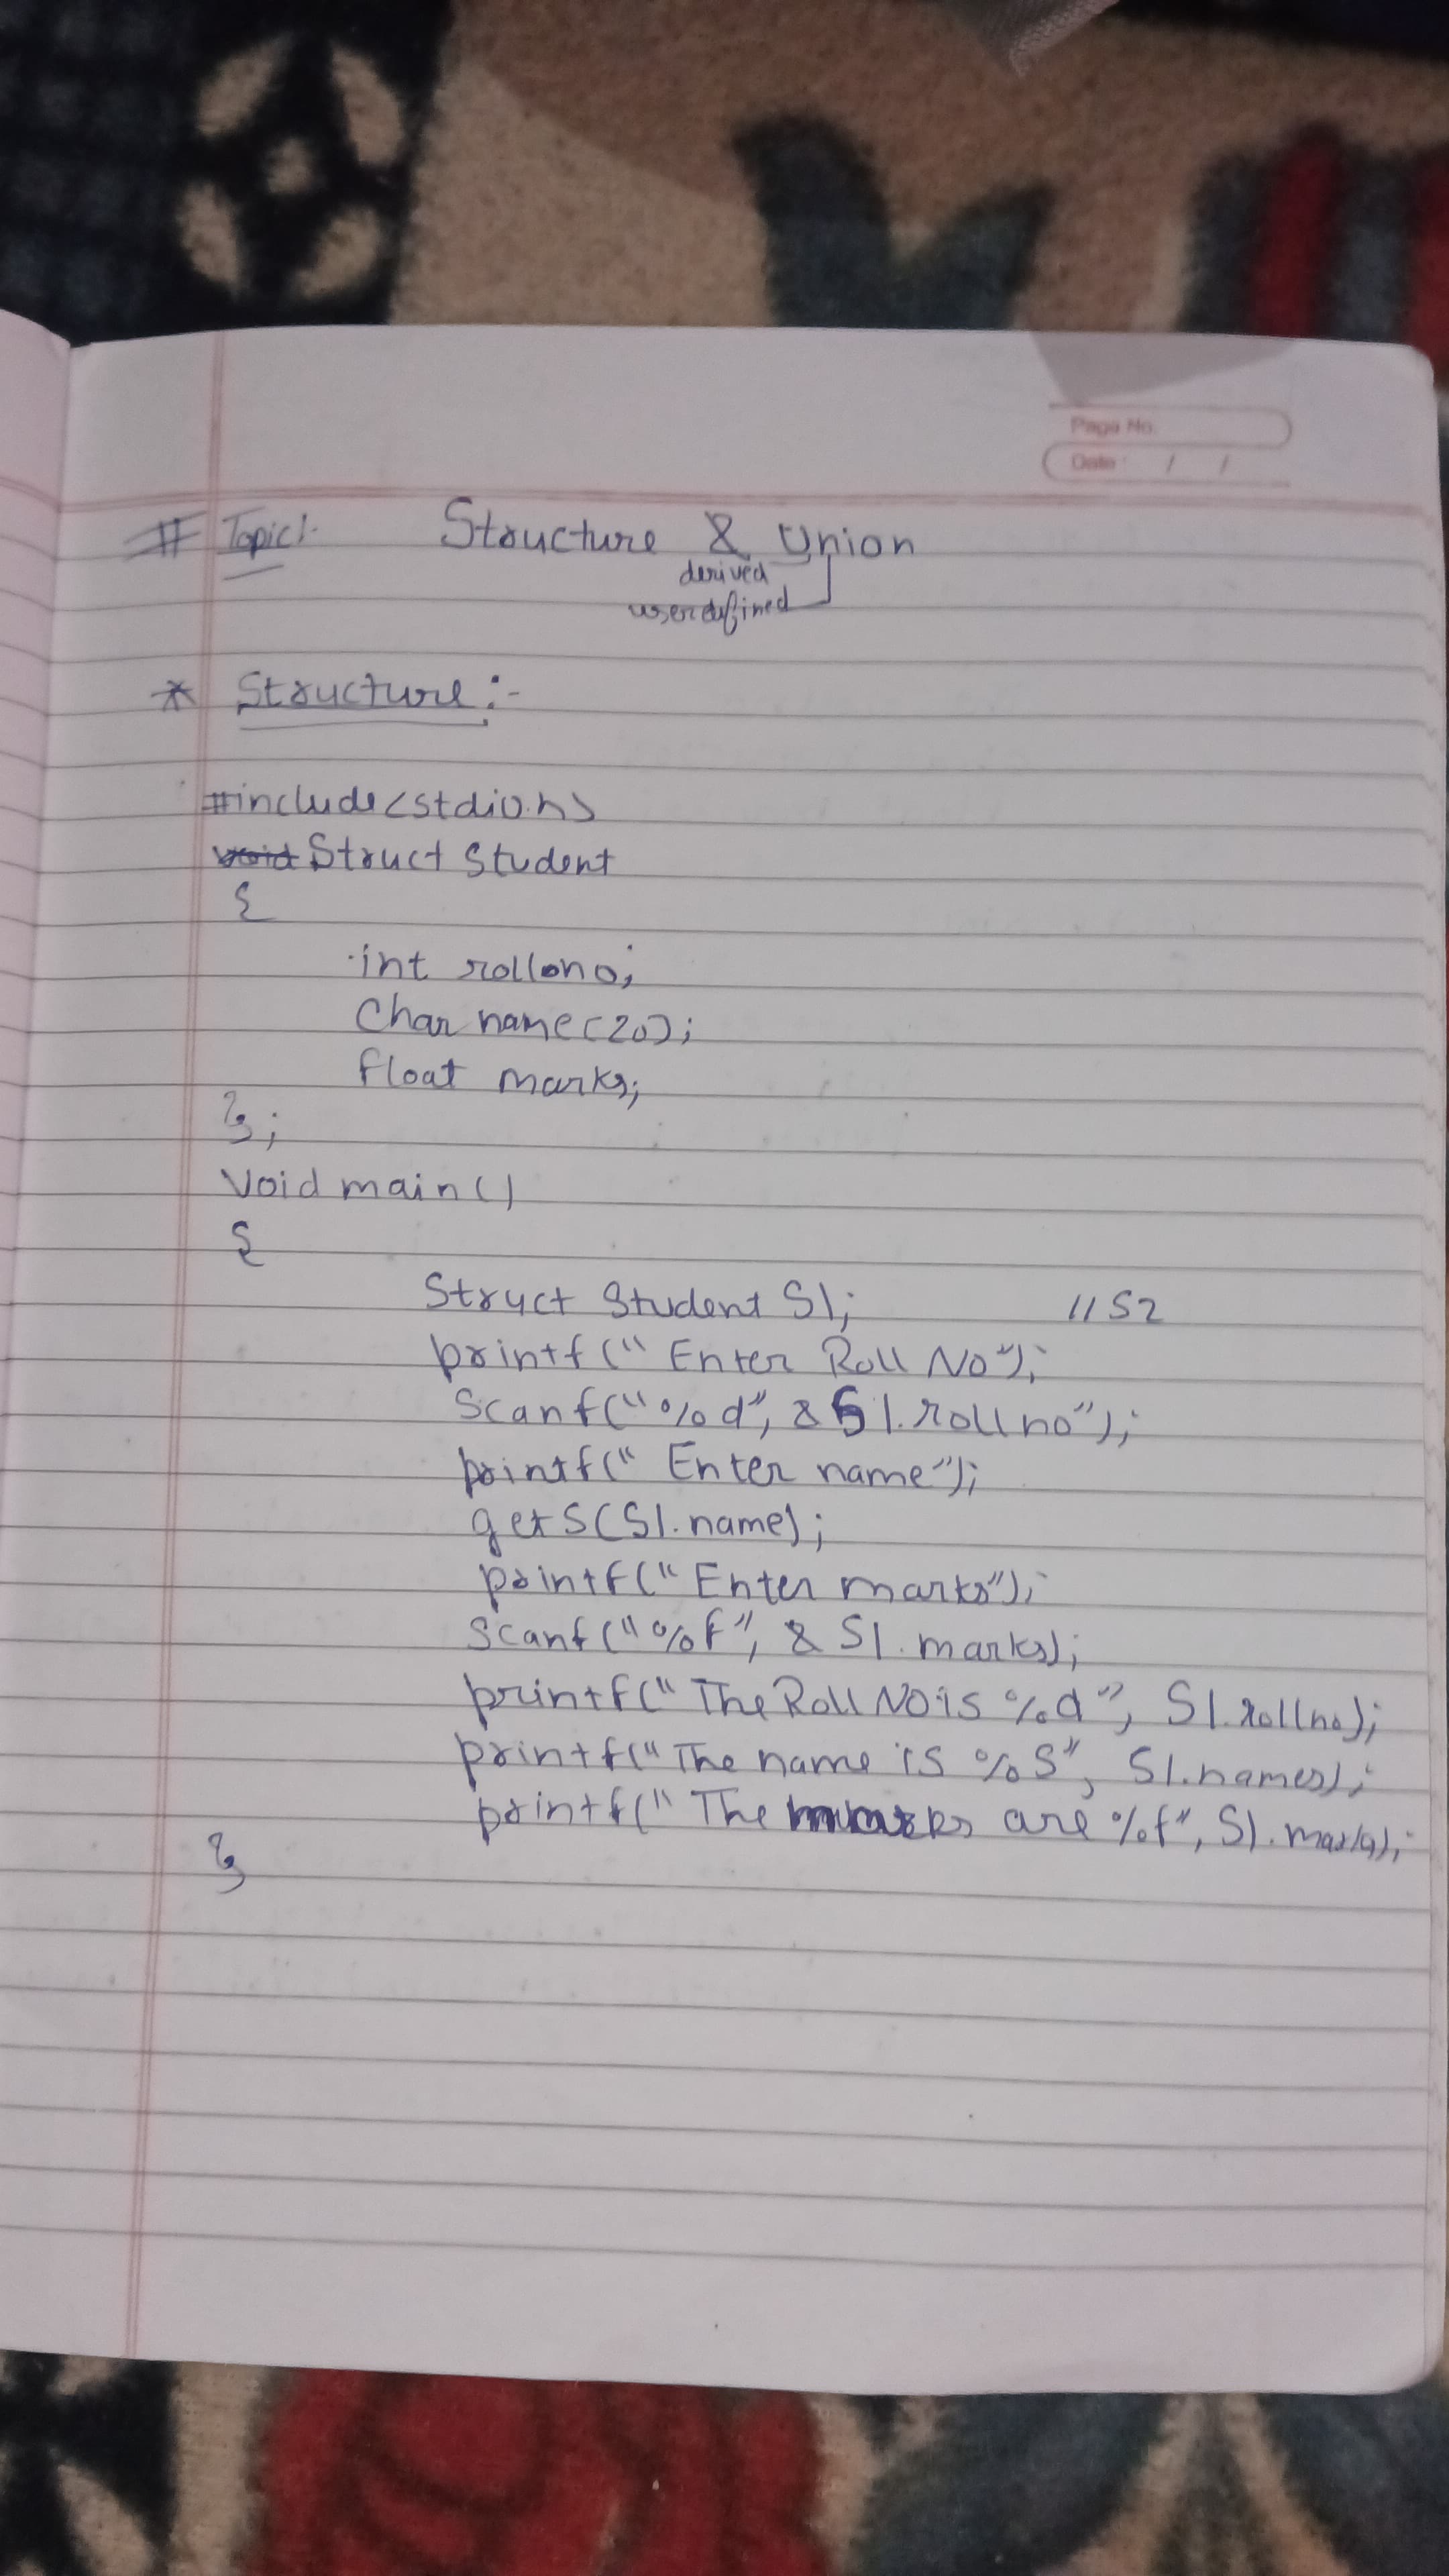 Page No.
Date : / /
# Topic:- Structure & Union
derived
userdefined
* Structure :-
#include<stdio.h>
void Struct Student
{
int rollono;
Char name(20);
float marks;
};
Void main()
{
Struct Student S1; //S2
printf(" Enter Roll No");
Scanf("%d", &S1.rollno");
printf(" Enter name");
gets(S1.name);
printf(" Enter marks");
Scanf("%f", & S1.marks);
printf(" The Roll NO is %d", S1.rollno);
printf(" The name is %S", S1.names);
printf(" The marks are %f", S1.marks);
}